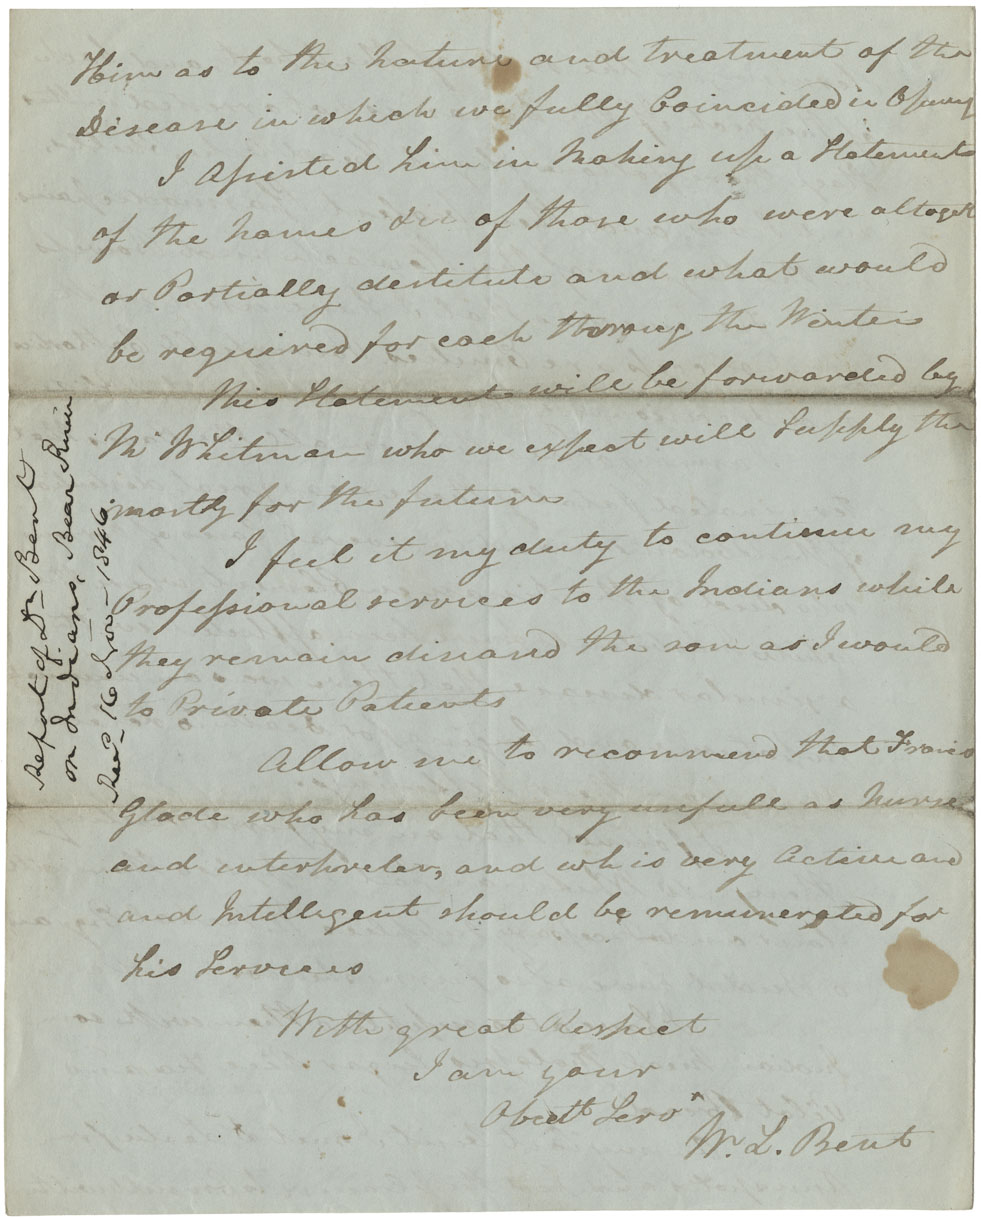 Him as to the nature and treatment of the
Disease in which we fully Coincided in
I Assisted him in Making up a Statement
of the names &c of those who were altogeth
or Partially destitute and what would
be required for each throug the Winter
This Statement will be forwarded by
Mr Whitman who we expect will Supply the
mostly for the future
I feel it my duty to continue my
Professional services to the Indians while
they remain diseased the sam as I would
to Private Patients
Allow me to recommend that
Glode who has been very usefull as Nurse
and interpreter, and wh is very Active and
and Intelligent should be remunerated for
his Services
With great Respect
I am your
Obedt Servt
W. L. Bent
Report of Dr Bent
on Indians, Bear River
16 Nov 1846